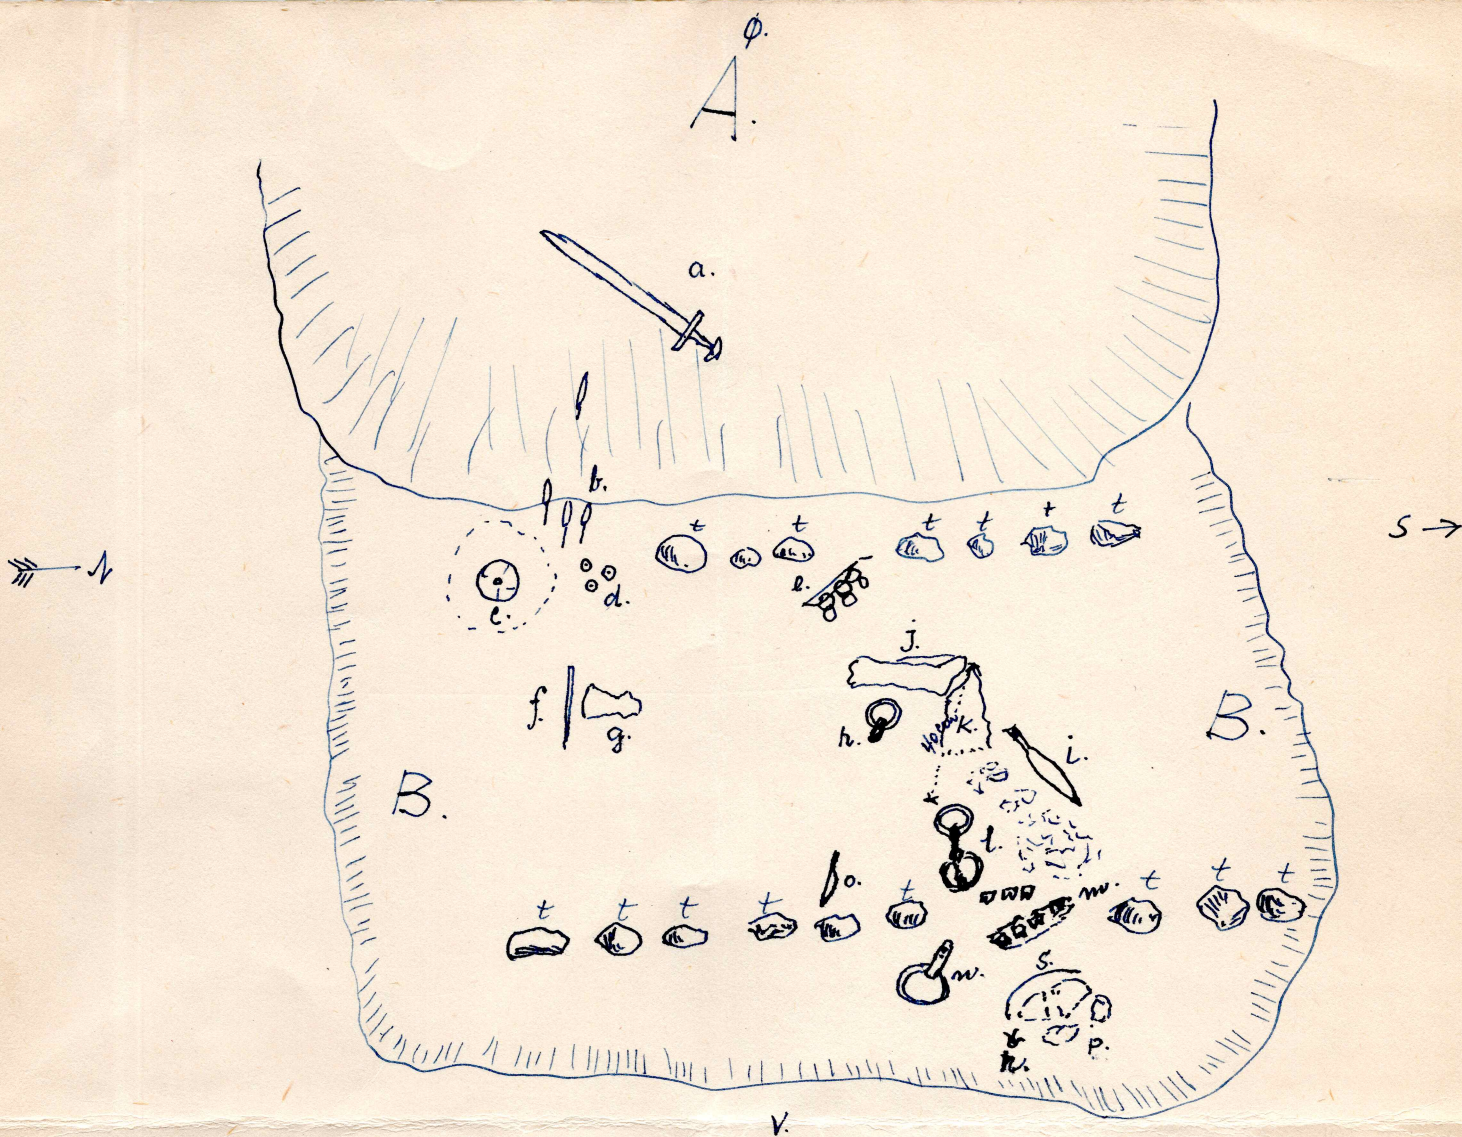 Ø.
A.
a.
b.
t t t t t t
S
N
c. d. e.
j.
f. g. h. 40 cm k. i.
B.
B.
l.
o. m.
t t t t t t t t t
n.
s.
p.
V.